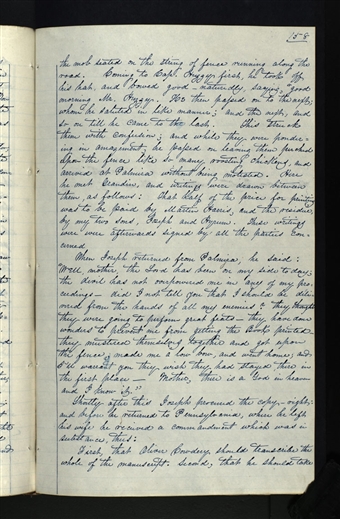 158
the mob seated on the string of fence running along the
road. Coming to Capt. Huzzy first, he took off
his hat, and bowed good-naturedly, saying, "good
morning Mr. Huzzy. He then passed on to the next;
whom he saluted in like manner; and the next, and
so on till he came to the last. This struck
them with confusion; and while they were ponder-
ing in amazement, he passed on leaving them perched
upon the fence like so many roosting chickens, and
arrived at Palmira without being molested. Here
he met Grandin, and writings were drawn between
them as follows: That half of the price for printing
was to be paid by Martin Harris, and the residue,
by my two sons, Joseph and Hyrum. These writings
were afterwards signed by all the parties con-
cerned
When Joseph returned from Palmira; he said:
"Well, mother, the Lord has been on my side to-day;
the devil has not overpowered me in any of my pro-
ceedings — did I not tell you that I should be deliv-
ered from the hands of all my enemies? They thought
they were going to perform great feats — they have done
wonders to prevent me from getting the Book printed
they mustered themselves together and got upon
the fence, made me a low bow, and went home; and
I'll warrant you they wish they had stayed there in
the first place — Mother, there is a God in heaven
and I know it."
Shortly after this Joseph procured the copy-right;
and before he returned to Pennsylvania, where he left
his wife he received a commandment which was in
substance, this:
First, that Oliver Cowdery should transcribe the
whole of the manuscript: Second, that he should take